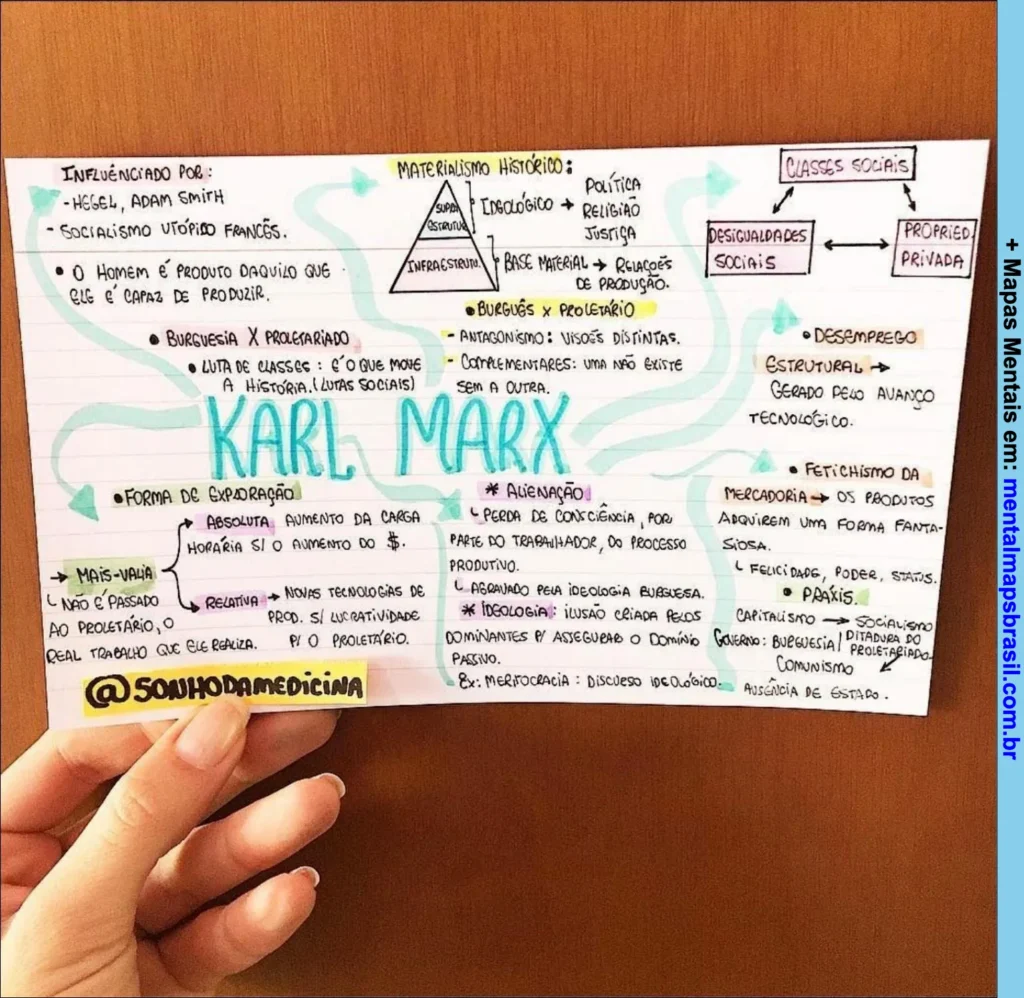 INFLUÊNCIADO POR:
- HEGEL, ADAM SMITH
- SOCIALISMO UTÓPICO FRANCÊS.
• O HOMEM É PRODUTO DAQUILO QUE
ELE É CAPAZ DE PRODUZIR.
MATERIALISMO HISTÓRICO:
SUPER
ESTRUTUR.
IDEOLÓGICO →
POLÍTICA
RELIGIÃO
JUSTIÇA
INFRAESTRUTU.
BASE MATERIAL → RELAÇÕES
DE PRODUÇÃO.
CLASSES SOCIAIS
DESIGUALDADES
SOCIAIS
PROPRIED.
PRIVADA
• BURGUESIA X PROLETARIADO
• LUTA DE CLASSES: É O QUE MOVE
A HISTÓRIA. (LUTAS SOCIAIS)
• BURGUÊS X PROLETÁRIO
- ANTAGONISMO: VISÕES DISTINTAS.
- COMPLEMENTARES: UMA NÃO EXISTE
SEM A OUTRA.
• DESEMPREGO
ESTRUTURAL →
GERADO PELO AVANÇO
TECNOLÓGICO.
KARL MARX
• FORMA DE EXPLORAÇÃO
→ MAIS-VALIA
NÃO É PASSADO
AO PROLETÁRIO, O
REAL TRABALHO QUE ELE REALIZA.
ABSOLUTA AUMENTO DA CARGA
HORÁRIA S/ O AUMENTO DO $.
RELATIVA → NOVAS TECNOLOGIAS DE
PROD. S/ LUCRATIVIDADE
P/ O PROLETÁRIO.
* ALIENAÇÃO
PERDA DE CONSCIÊNCIA, POR
PARTE DO TRABALHADOR, DO PROCESSO
PRODUTIVO.
AGRAVADO PELA IDEOLOGIA BURGUESA.
* IDEOLOGIA: ILUSÃO CRIADA PELOS
DOMINANTES P/ ASSEGURAR O DOMÍNIO
PASSIVO.
Ex: MERITOCRACIA: DISCURSO IDEOLÓGICO.
• FETICHISMO DA
MERCADORIA → OS PRODUTOS
ADQUIREM UMA FORMA FANTA-
SIOSA.
FELICIDADE, PODER, STATUS.
• PRAXIS.
CAPITALISMO → SOCIALISMO
GOVERNO: BURGUESIA/ DITADURA DO
PROLETARIADO.
COMUNISMO
AUSÊNCIA DE ESTADO.
@SONHODAMEDICINA
+ Mapas Mentais em: mentalmapsbrasil.com.br